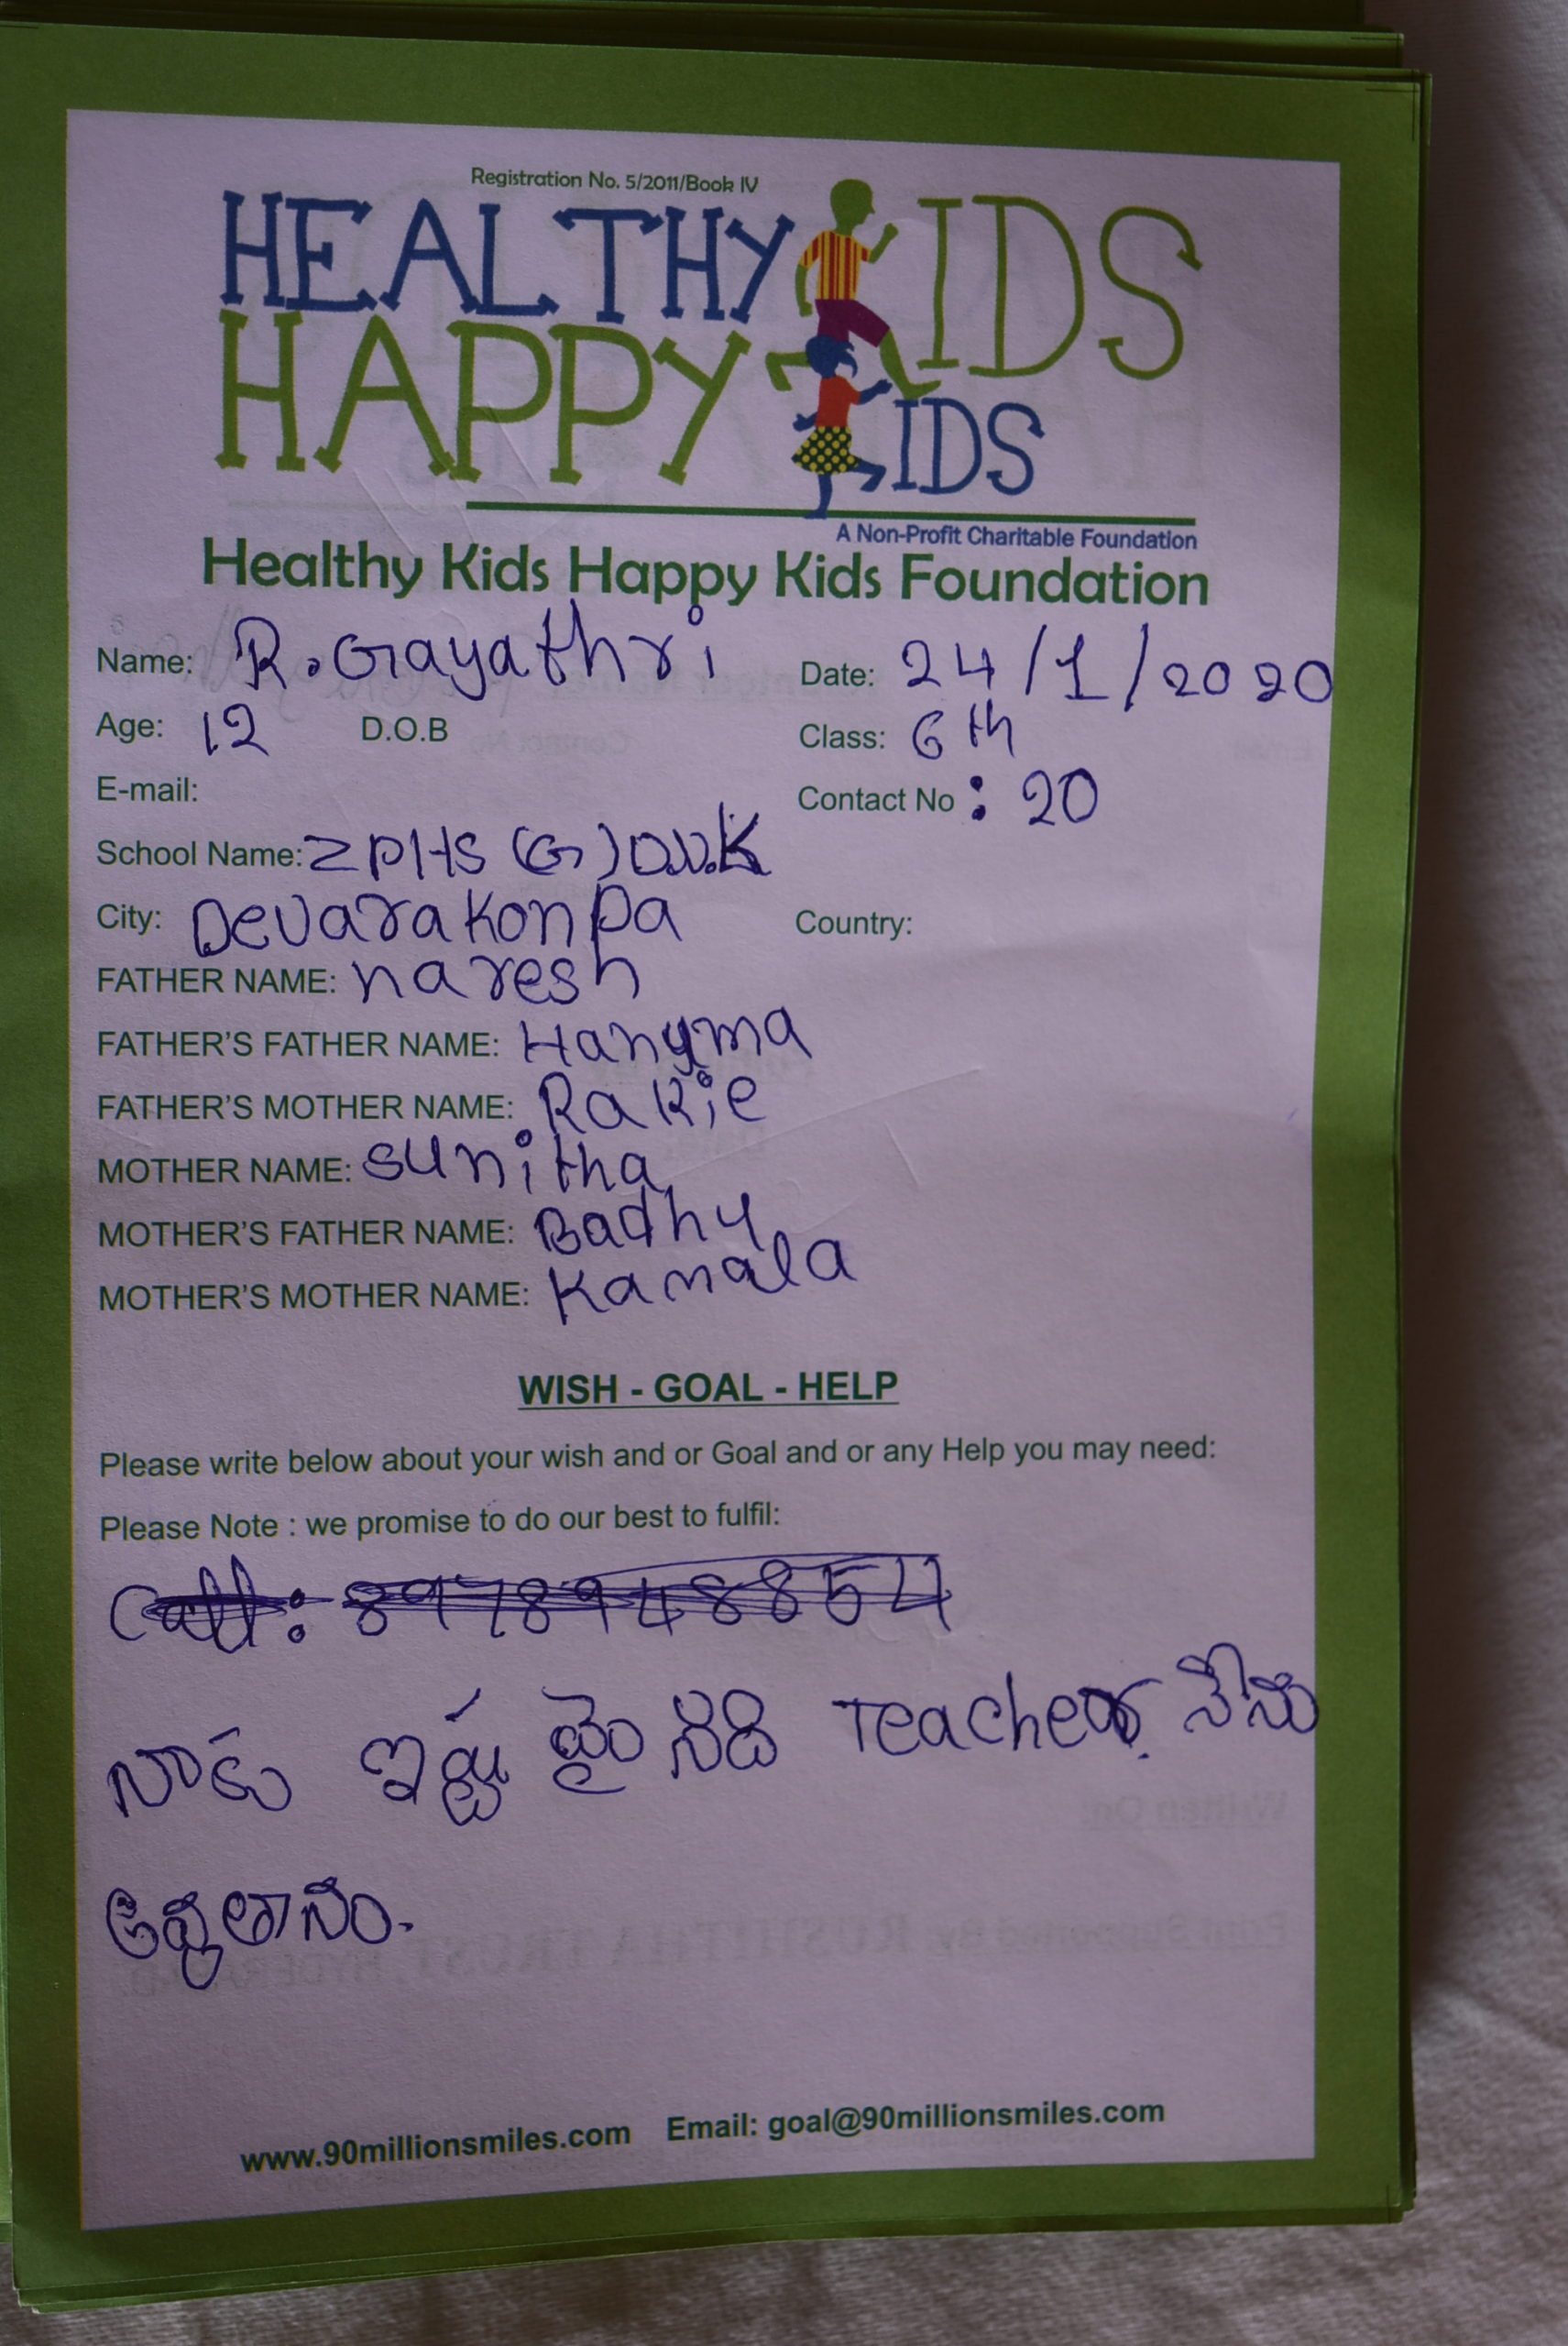 Registration No. 5/2011/Book IV
HEALTHY KIDS
HAPPY KIDS
A Non-Profit Charitable Foundation
Healthy Kids Happy Kids Foundation
Name: R. Gayathri Date: 24/1/2020
Age: 12 D.O.B Class: 6th
E-mail: Contact No : 20
School Name: ZPHS (G) D.V.K
City: DevarakonDa Country:
FATHER NAME: naresh
FATHER'S FATHER NAME: Hanyma
FATHER'S MOTHER NAME: Rakie
MOTHER NAME: sunitha
MOTHER'S FATHER NAME: Badhu
MOTHER'S MOTHER NAME: Kamala
WISH - GOAL - HELP
Please write below about your wish and or Goal and or any Help you may need:
Please Note : we promise to do our best to fulfil:
నాకు ఇష్ట మైనది Teacher నేను
అవ్వతాను.
www.90millionsmiles.com Email: goal@90millionsmiles.com